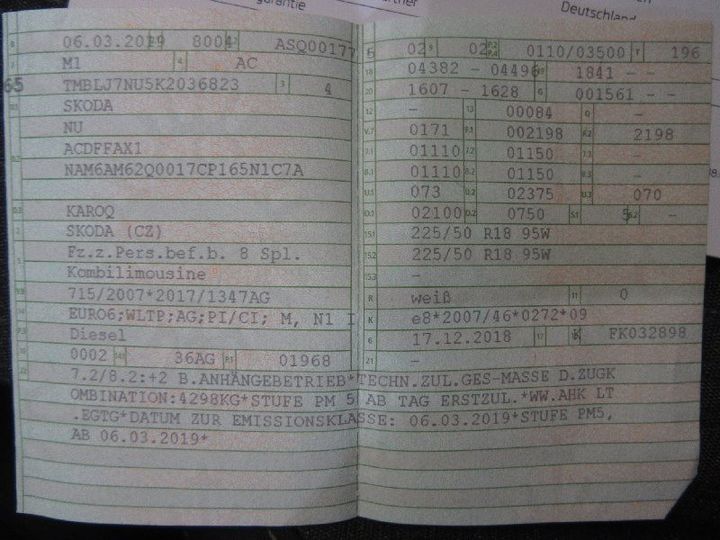 garantie
Deutschland
06.03.2019 8004 ASQ00177
M1 AC
TMBLJ7NU5K2036823 4
SKODA
NU
ACDFFAX1
NAM6AM62Q0017CP165N1C7A
KAROQ
SKODA (CZ)
Fz.z.Pers.bef.b. 8 Spl.
Kombilimousine
715/2007*2017/1347AG
EURO6;WLTP;AG;PI/CI; M, N1 I
Diesel
0002 36AG 01968
02 02 0110/03500 196
04382 - 04496 1841 - -
1607 - 1628 G 001561 - -
12 - 13 00084 Q -
V.7 0171 F.1 002198 F.2 2198
7.1 01110 7.2 01150 7.3 -
8.1 01110 8.2 01150 8.3 -
U.1 073 U.2 02375 U.3 070
O.1 02100 O.2 0750 S.1 5 S.2 -
15.1 225/50 R18 95W
15.2 225/50 R18 95W
15.3 -
R weiß 11 0
K e8*2007/46*0272*09
6 17.12.2018 17 K FK032898
21 -
7.2/8.2:+2 B.ANHÄNGEBETRIEB*TECHN.ZUL.GES-MASSE D.ZUGK
OMBINATION:4298KG*STUFE PM 5 AB TAG ERSTZUL.*WW.AHK LT
.EGTG*DATUM ZUR EMISSIONSKLASSE: 06.03.2019*STUFE PM5,
AB 06.03.2019*